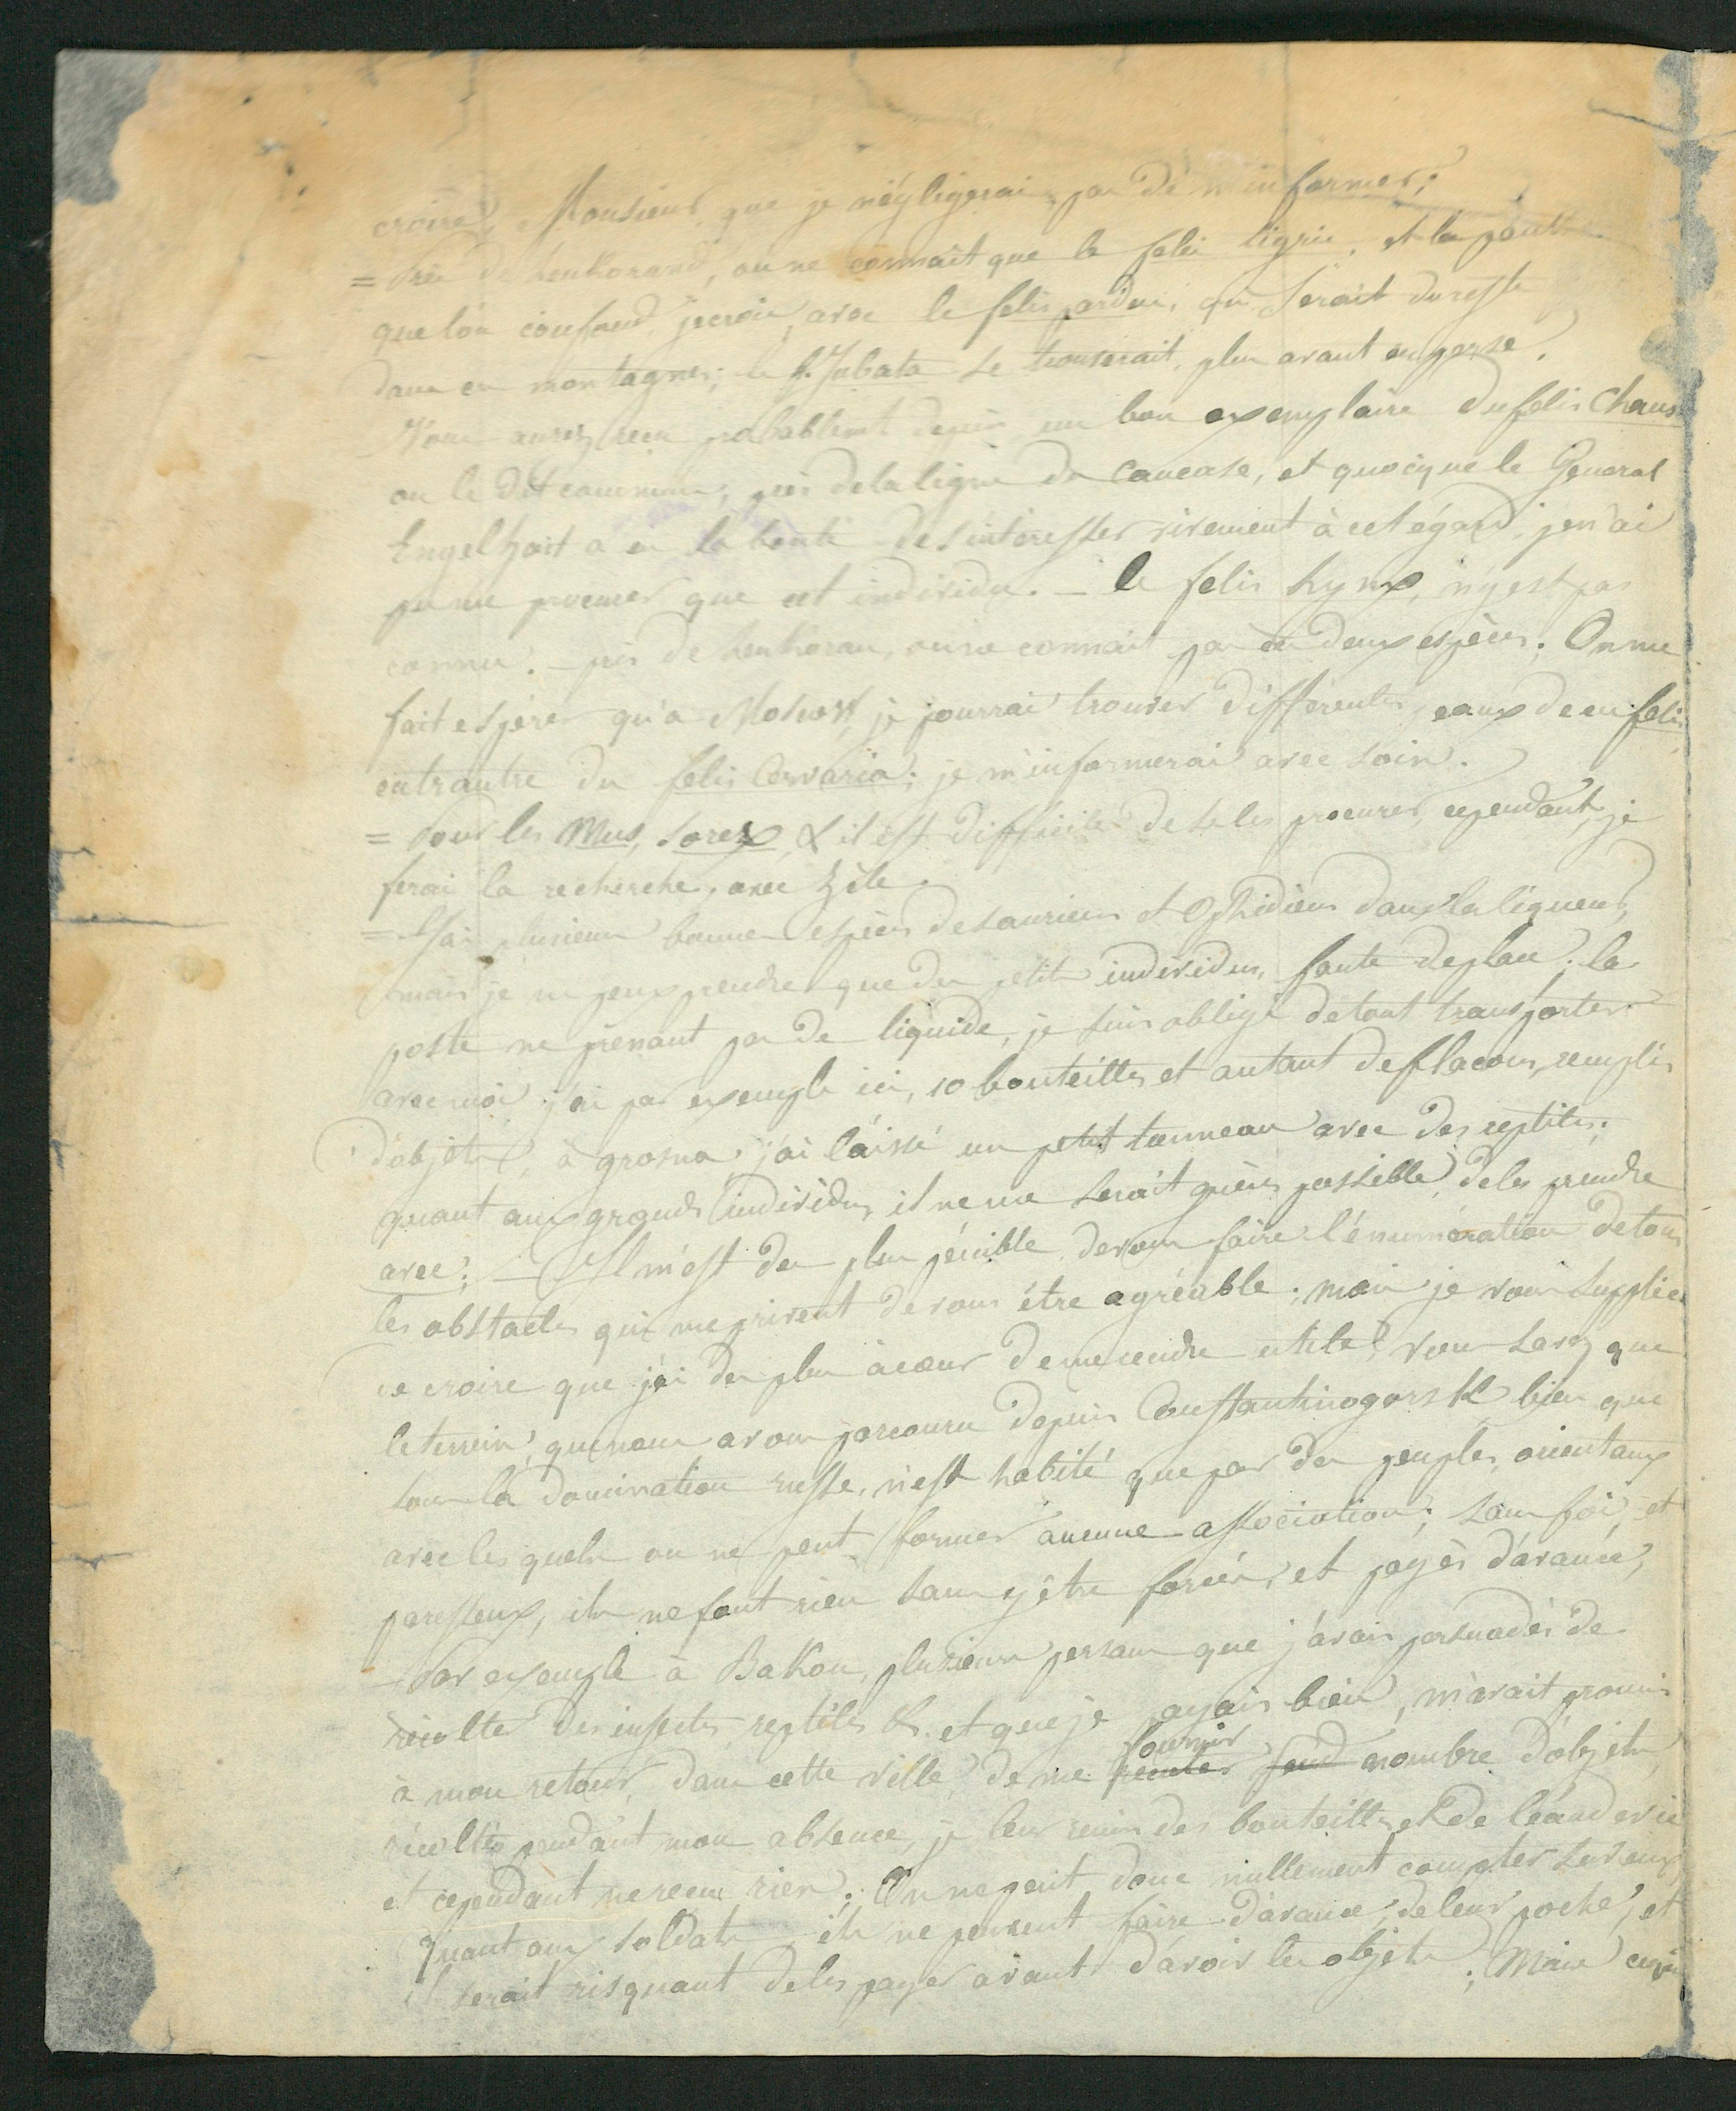 croire, Monsieur que je négligerai pas de m'informer;
= Près de Lenkorand, on ne connait que le felis tigris, et la panth
que l'on confond, je crois, avec le felis pardus, qui serait du reste
dans ces montagnes; le f. Jubata se trouverait plus avant en perse.
Vous aurez reçu probablemt depuis un bon exemplaire du felis Chaus
on le dit commun, près de la ligne du Caucase, et quocique le General
Engelhart a eu la bonté de s'intéresser vivement à cet égard, je n'ai
pu me procurer que cet individu. – le felis Lynx, n'y est pas
connu. – près de Lenkoran, on ne connait pas ces deux espèces; On me
fait espérer qu'a Moskow, je pourrai trouver différentes peaux de ces felis
entr'autre du felis Cervaria; je m'informerai avec soin.
= Pour les Mus, Sorex, & il est difficile de se les procurer, cependant, je
ferai la recherche, avec zèle.
= J'ai plusieurs bonnes espèces de sauriens et Ophidiens dans la liqueur,
mais je ne peux prendre que des petits individus, faute de place; la
poste ne prenant pas de liquide, je suis obligé de tout transporter
avec moi j'ai par exemple ici, 10 bouteilles et autant de flacons, remplis
d'objets, à grosna j'ai laissé un petit tonneau avec des reptiles;
quant aux grands individus, il ne me serait guères possible, de les prendre
avec; – Il m'est des plus pénible de vous faire l'énumération de tous
les obstacles qui me privent de vous être agréable; mais je vous supplie
ce croire que j'ai des plus à cœur de me rendre utile; vous savez que
le terrein, que nous avons parcouru depuis Constantinogorsk bien que
sous la domination russe, n'est habité que par des peuples orientaux
avec les quels on ne peut former aucune association; sans foi, et
paresseux, ils ne font rien sans y être forcés, et payés d'avance,
– Par exemple à Bakou, plusieurs persans que j'avais persuadés de
récolter des insectes, reptiles &. et que je payais bien, m'avait promis
à mon retour, dans cette ville, de me fournir nombre d'objets,
récoltés pendant mon absence, je leur remis des bouteilles et de l'eau de vie
et cependant ne reçus rien; On ne peut donc nullement compter sur eux,
quant aux soldats, ils ne peuvent faire d'avance, de leur poche, et
il serait risquant de les payer avant d'avoir les objets; Mais